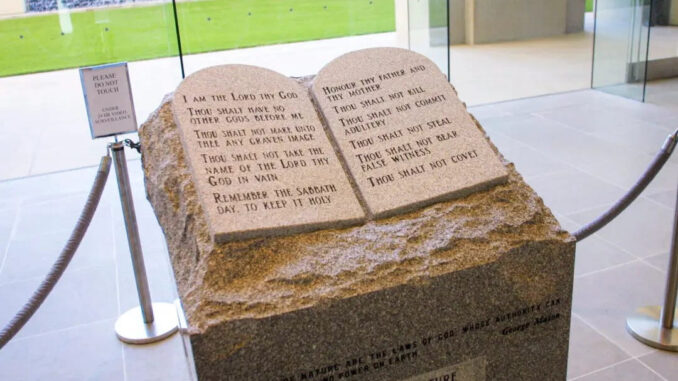 PLEASE
DO NOT
TOUCH
UNDER
24 HR VIDEO
SURVEILLANCE
I AM THE LORD THY GOD
THOU SHALT HAVE NO
OTHER GODS BEFORE ME
THOU SHALT NOT MAKE UNTO
THEE ANY GRAVEN IMAGE
THOU SHALT NOT TAKE THE
NAME OF THE LORD THY
GOD IN VAIN
REMEMBER THE SABBATH
DAY, TO KEEP IT HOLY
HONOUR THY FATHER AND
THY MOTHER
THOU SHALT NOT KILL
THOU SHALT NOT COMMIT
ADULTERY
THOU SHALT NOT STEAL
THOU SHALT NOT BEAR
FALSE WITNESS
THOU SHALT NOT COVET
NATURE ARE THE LAWS OF GOD, WHOSE AUTHORITY CAN
NO POWER ON EARTH.
George Mason